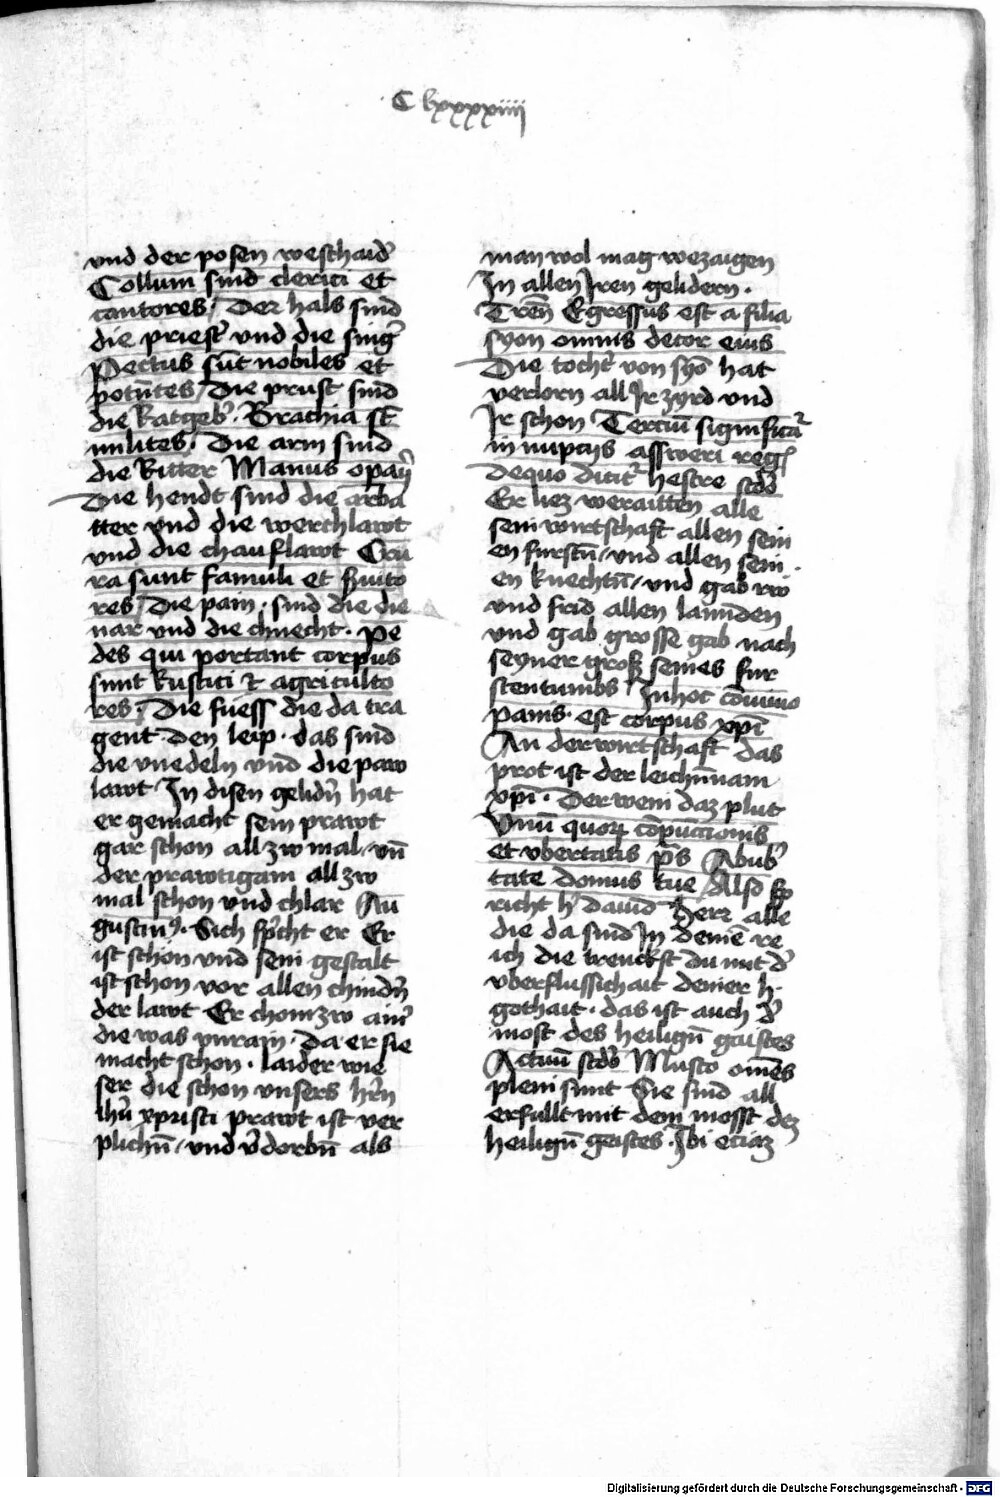 C lxxxxiiii
vnd der posen weschaid᷑
Collum sind clerici et
cantores / Der hals sind
die priest᷑ vnd die sing᷑
Pectus sūt nobiles et
potn̄tes / Die prust sind
die Ratgeb᷑ · Brachia st̄
milites · Die arm sind
die Ritter Manus opar̄ij
Die hendt sind die arba
tter vnd die werchlawt
vnd die chauflawt Cru
ra sunt famuli et s᷑uito
res / Die pain · sind die die
nar vnd die chnecht · Pe
des qui portant corpus
sunt Rustici et agriculto
res · Die fuess die da tra
gent den leip · das sind
die vnedeln vnd die paw
lawt · In disen gelidn̄ hat
er gemacht sein prawt
gar schon all zw mal · vn̄
der prawtigam all zw
mal schon vnd chlar Au
gustinꝰ · Sich sp̄cht er Er
ist schon vnd sein gestalt
ist schon vor allen chindn̄
der lawt Er chom zw ain᷑
die was vnrain · Da er sie
macht schon · laider wie
ser die schon vnsers hr̄n
ihū xpristi prawt ist ver
plichn̄ / vnd v᷑dorbn̄ als
man wol mag wezaigen
In allen Iren gelidern ·
Tren̄ Egressus est a filia
syon omnis decor eius
Die tocht᷑ von syō hat
verlorn all Ir zyrd vnd
Ir schon Terciū significat᷑
in nupcijs assweri reg
de quo dicit᷑ hestre scd̄o
Er liez weraitten alle
sein wirtschaft allen sein
en furstn̄ / vnd allen sein
en knechtn̄ / vnd gab rw
vnd frid allen lannden
vnd gab grosse gab nach
seyner gros seines fur
stentumbs / In hoc cōuiuio
panis · est corpus xpī
An der wirtschaft das
prot ist der leichnnam
xpī · Der wein daz plut
Vinū quoꝗ cōpūccionis
et vbertatis ps̄ Ab ub᷑
tate domus tue / Also sp
richt h᷑ dauid Herr alle
die da sind In deinē re
ich die trenckst du mit d᷑
vberflussichait deiner h·
gothait · das ist auch d᷑
most des heilign̄ gaistes
Actuū scd̄o Musto om̄es
pleni sunt Sie sind all
erfullt mit dem mosst dez
heilign̄ geistes · Ibi etiaz